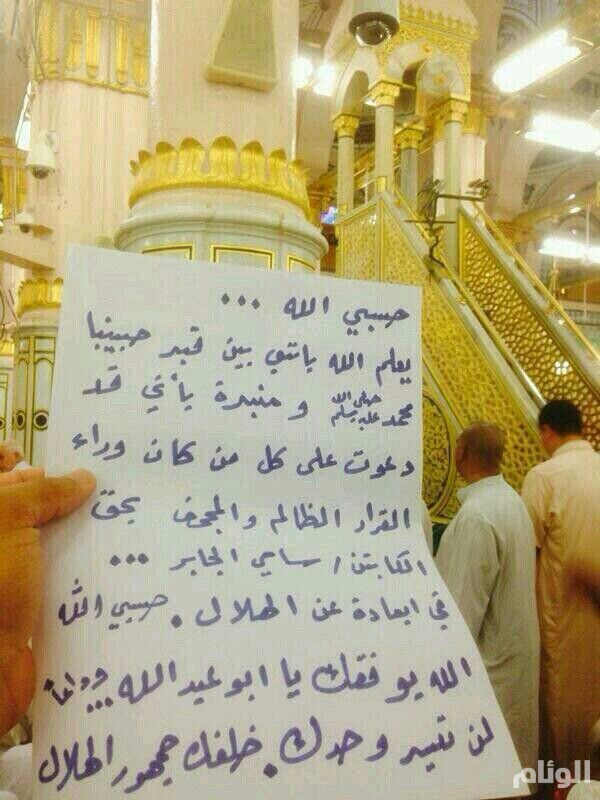 حسبي الله ...
يعلم الله بانني بين قبر حبيبنا
محمد صلى الله عليه وسلم ومنبرة بأني قد
دعوت على كل من كان وراء
القرار الظالم والمجحف بحق
الكابتن / سامي الجابر ...
في ابعادة عن الهلال . حسبي الله
الله يوفقك يا ابو عبدالله ... ودائماً
لن تسير وحدك . خلفك جمهور الهلال
الوئام